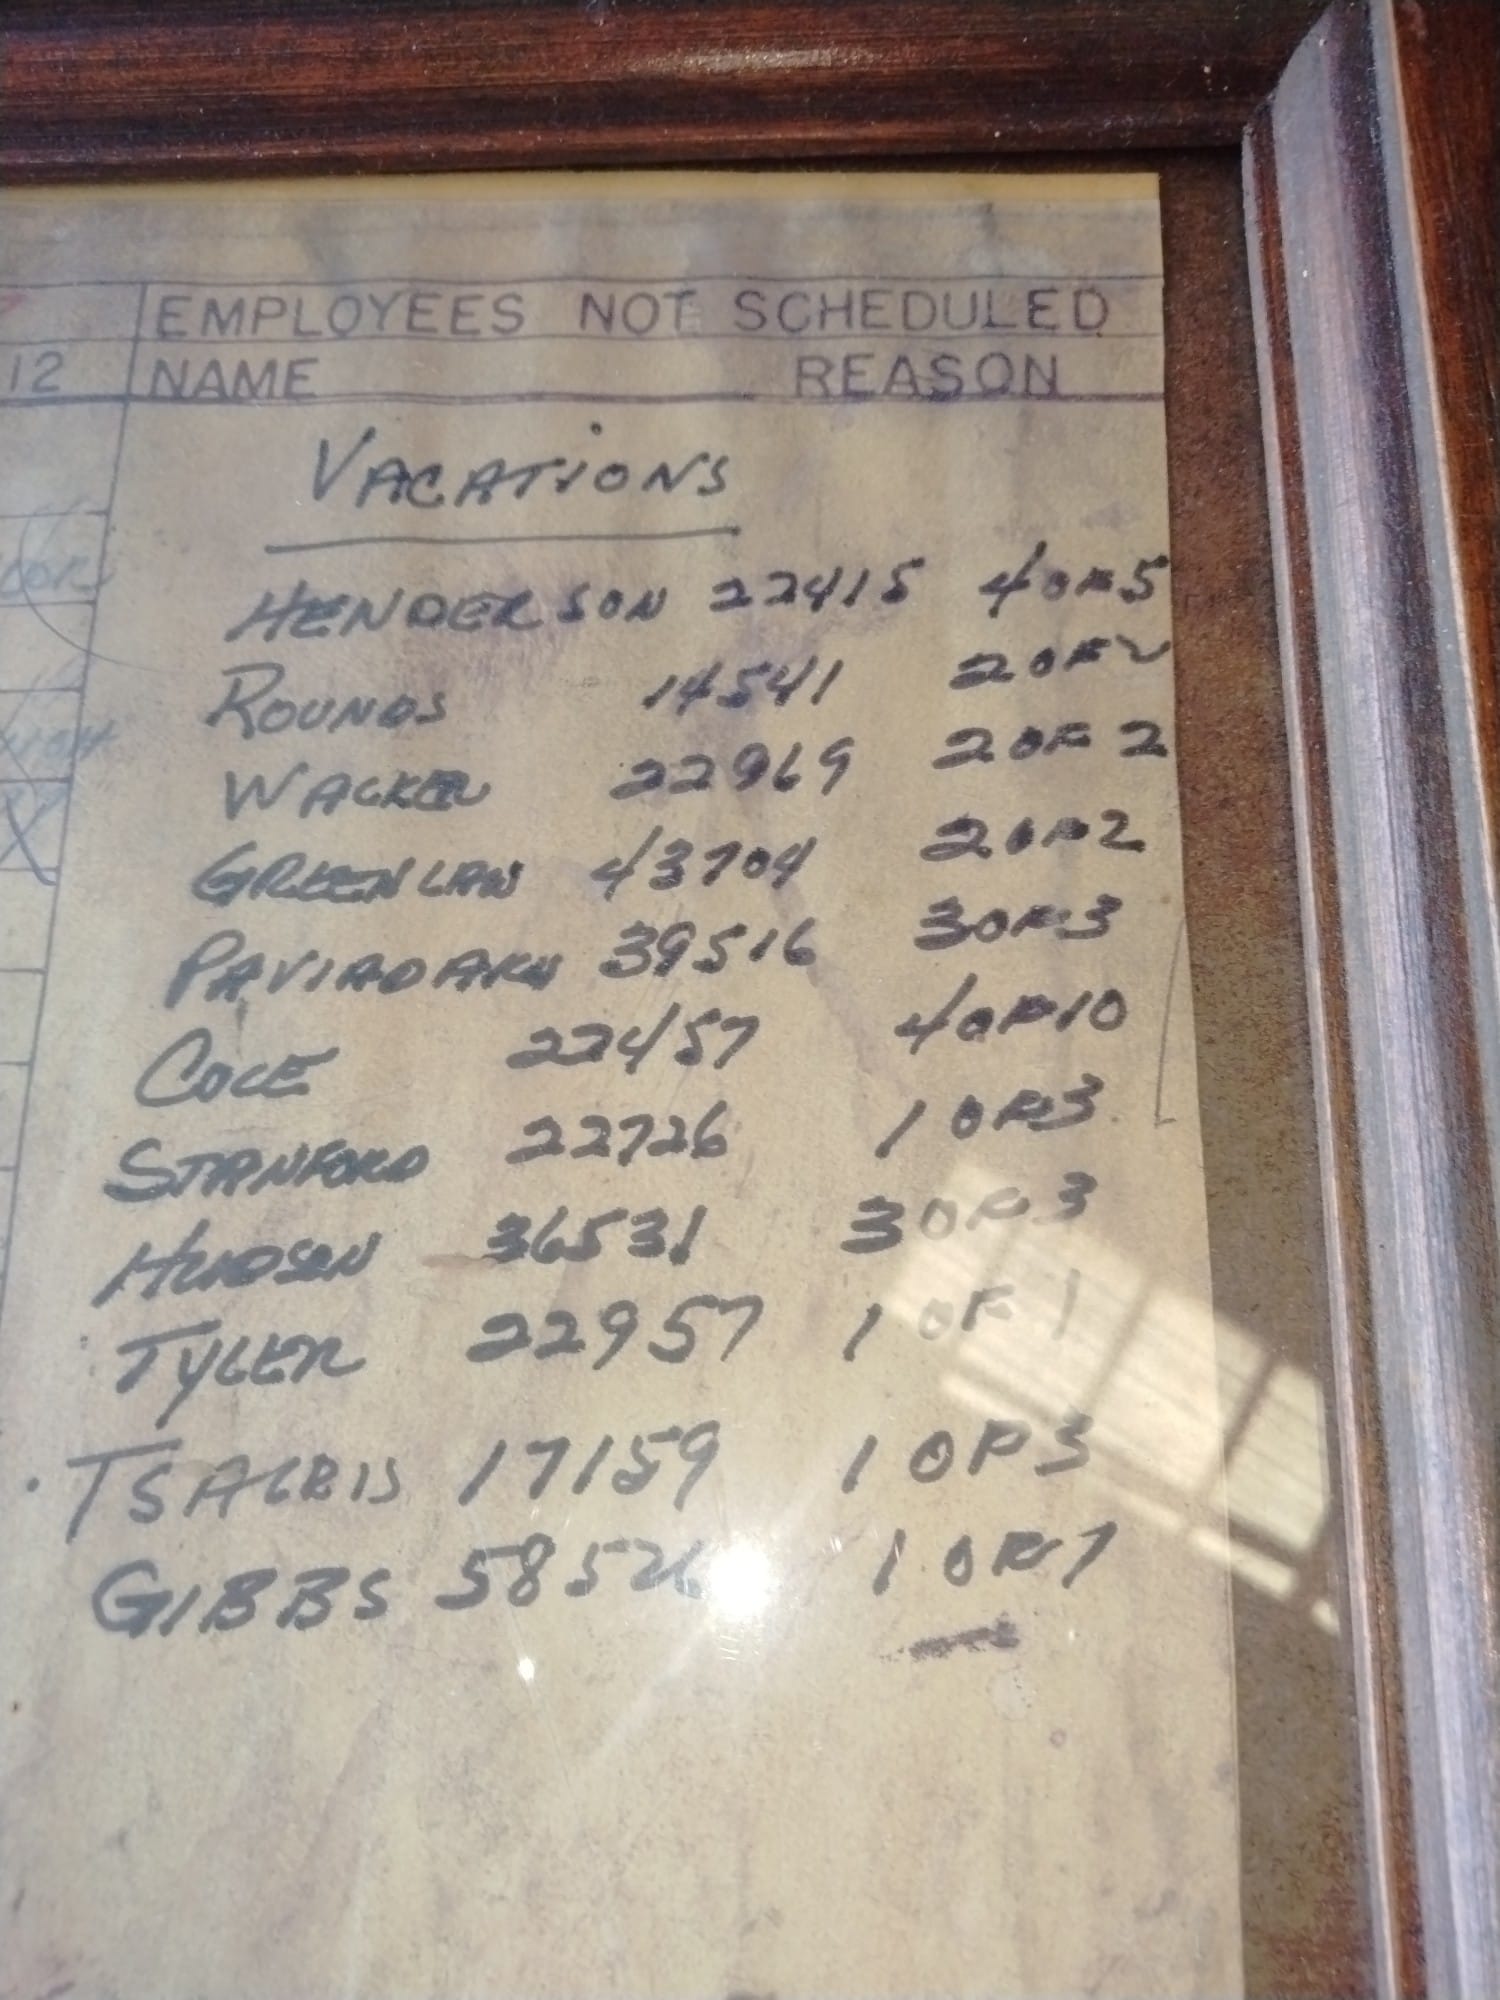 EMPLOYEES NOT SCHEDULED
12 NAME REASON
VACATIONS
HENDERSON 22415 4 OF 5
ROUNDS 14541 2 OF 2
WACKER 22969 2 OF 2
GREENLAW 43704 2 OF 2
39516 3 OF 3
COLE 22457 4 OF 10
STANFORD 22726 1 OF 3
HUDSON 36531 3 OF 3
TYLER 22957 1 OF 1
17159 1 OF 3
GIBBS 58526 1 OF 7